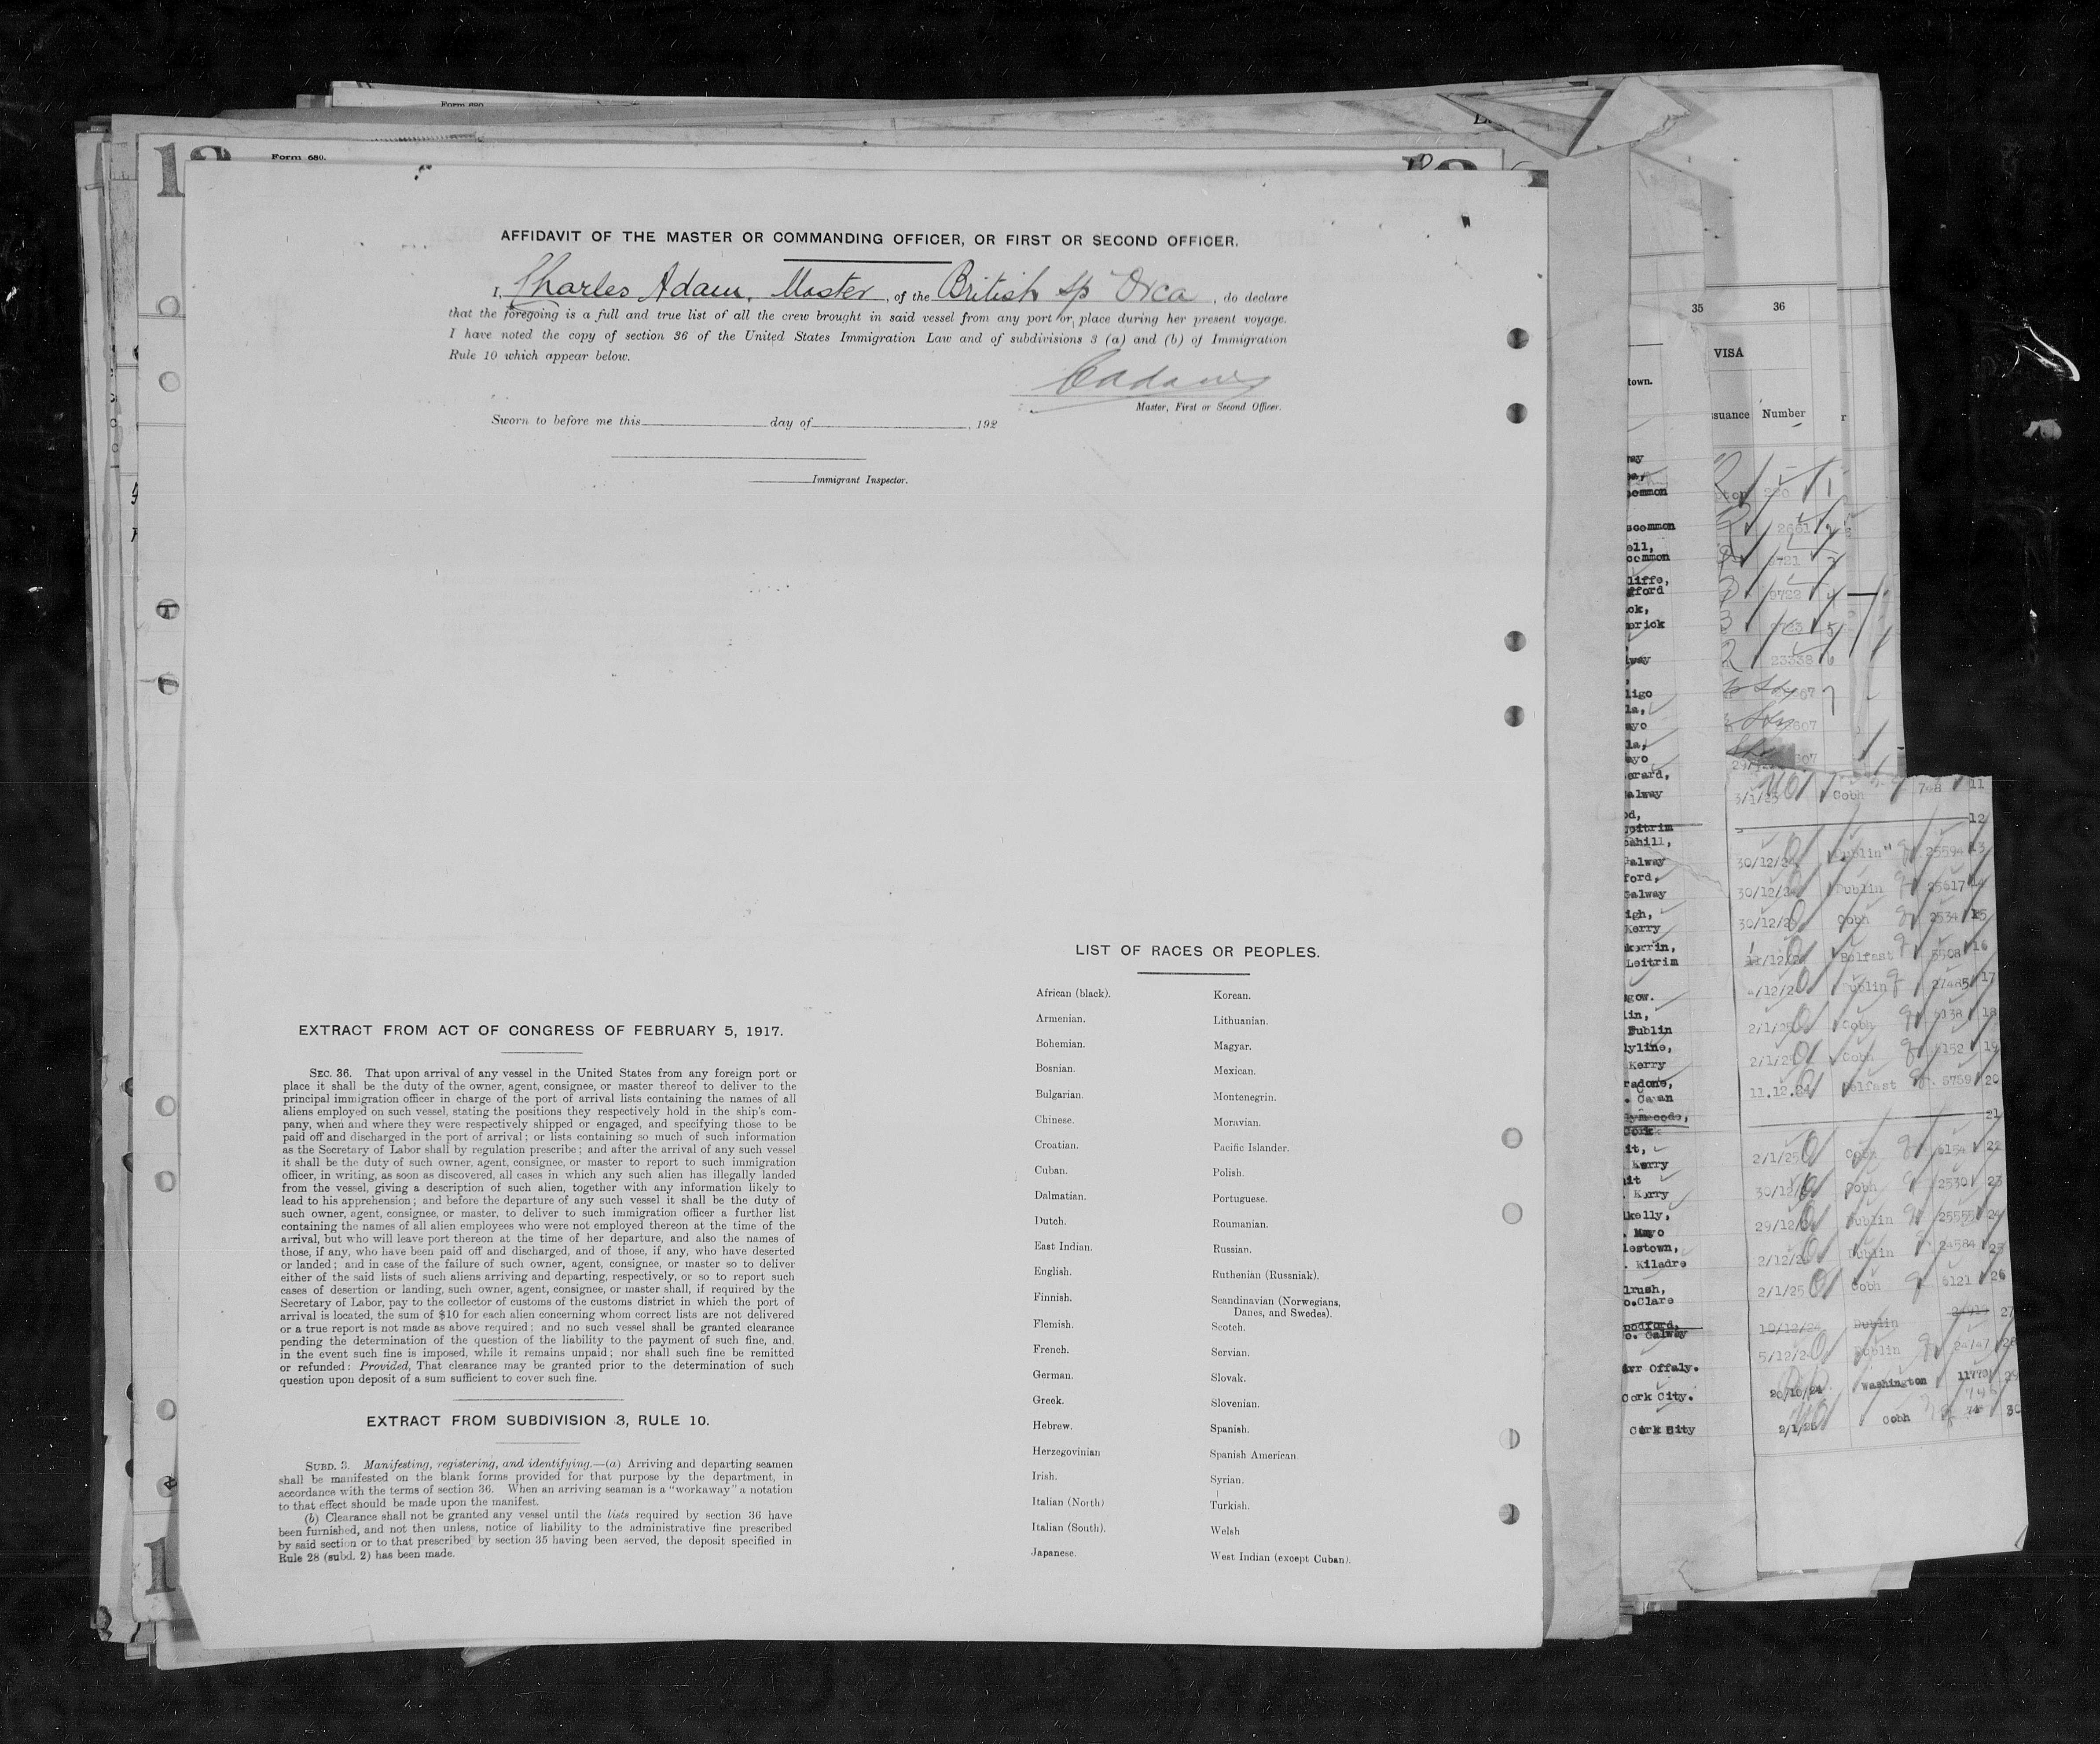 Form 680.
AFFIDAVIT OF THE MASTER OR COMMANDING OFFICER, OR FIRST OR SECOND OFFICER.
I, Charles Adam, Master, of the British sp Orca, do declare
that the foregoing is a full and true list of all the crew brought in said vessel from any port or place during her present voyage.
I have noted the copy of section 36 of the United States Immigration Law and of subdivisions 3 (a) and (b) of Immigration
Rule 10 which appear below.
CAdam
Master, First or Second Officer.
Sworn to before me this day of , 192
Immigrant Inspector.
EXTRACT FROM ACT OF CONGRESS OF FEBRUARY 5, 1917.
SEC. 36. That upon arrival of any vessel in the United States from any foreign port or
place it shall be the duty of the owner, agent, consignee, or master thereof to deliver to the
principal immigration officer in charge of the port of arrival lists containing the names of all
aliens employed on such vessel, stating the positions they respectively hold in the ship's com-
pany, when and where they were respectively shipped or engaged, and specifying those to be
paid off and discharged in the port of arrival; or lists containing so much of such information
as the Secretary of Labor shall by regulation prescribe; and after the arrival of any such vessel
it shall be the duty of such owner, agent, consignee, or master to report to such immigration
officer, in writing, as soon as discovered, all cases in which any such alien has illegally landed
from the vessel, giving a description of such alien, together with any information likely to
lead to his apprehension; and before the departure of any such vessel it shall be the duty of
such owner, agent, consignee, or master, to deliver to such immigration officer a further list
containing the names of all alien employees who were not employed thereon at the time of the
arrival, but who will leave port thereon at the time of her departure, and also the names of
those, if any, who have been paid off and discharged, and of those, if any, who have deserted
or landed; and in case of the failure of such owner, agent, consignee, or master so to deliver
either of the said lists of such aliens arriving and departing, respectively, or so to report such
cases of desertion or landing, such owner, agent, consignee, or master shall, if required by the
Secretary of Labor, pay to the collector of customs of the customs district in which the port of
arrival is located, the sum of $10 for each alien concerning whom correct lists are not delivered
or a true report is not made as above required; and no such vessel shall be granted clearance
pending the determination of the question of the liability to the payment of such fine, and,
in the event such fine is imposed, while it remains unpaid; nor shall such fine be remitted
or refunded: Provided, That clearance may be granted prior to the determination of such
question upon deposit of a sum sufficient to cover such fine.
EXTRACT FROM SUBDIVISION 3, RULE 10.
SUBD. 3. Manifesting, registering, and identifying.—(a) Arriving and departing seamen
shall be manifested on the blank forms provided for that purpose by the department, in
accordance with the terms of section 36. When an arriving seaman is a "workaway" a notation
to that effect should be made upon the manifest.
(b) Clearance shall not be granted any vessel until the lists required by section 36 have
been furnished, and not then unless, notice of liability to the administrative fine prescribed
by said section or to that prescribed by section 35 having been served, the deposit specified in
Rule 28 (subd. 2) has been made.
LIST OF RACES OR PEOPLES.
African (black).
Armenian.
Bohemian.
Bosnian.
Bulgarian.
Chinese.
Croatian.
Cuban.
Dalmatian.
Dutch.
East Indian.
English.
Finnish.
Flemish.
French.
German.
Greek.
Hebrew.
Herzegovinian
Irish.
Italian (North)
Italian (South).
Japanese.
Korean.
Lithuanian.
Magyar.
Mexican.
Montenegrin.
Moravian.
Pacific Islander.
Polish.
Portuguese.
Roumanian.
Russian.
Ruthenian (Russniak).
Scandinavian (Norwegians,
Danes, and Swedes).
Scotch.
Servian.
Slovak.
Slovenian.
Spanish.
Spanish American
Syrian.
Turkish.
Welsh
West Indian (except Cuban).
35 36
VISA
Number
Galway
Kerry
Leitrim
Dublin
Kerry
Kerry
Kerry
Mayo
Kildare
Offaly.
Cork City.
Cork City
3/1/25 Cobh 748 11
12
30/12/24 Dublin 25594 13
30/12/24 Dublin 25617 14
30/12/24 Cobh 2534 15
Belfast 5508 16
4/12/24 Dublin 27485 17
2/1/25 Cobh 6138 18
2/1/25 Cobh 6152 19
11.12.24 Belfast 5759 20
21
2/1/25 Cobh 6154 22
30/12/24 Cobh 2530 23
29/12/24 Dublin 25555 24
2/12/24 Dublin 24584 25
2/1/25 Cobh 6121 26
10/12/24 Dublin 27
5/12/24 Dublin 24747 28
20/10/24 Washington 29
2/1/25 Cobh 30